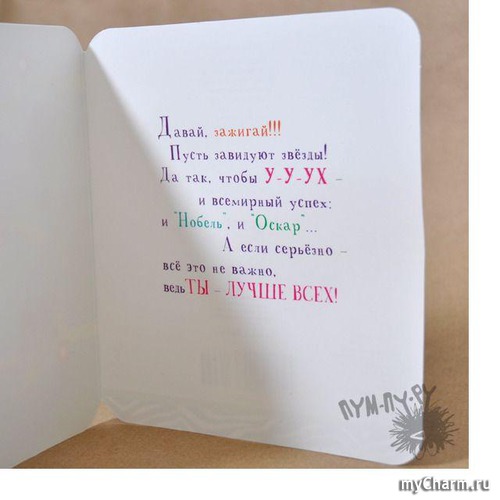 Давай, зажигай!!!
Пусть завидуют звёзды!
Да так, чтобы У-У-УХ –
и всемирный успех:
и "Нобель", и "Оскар"...
А если серьёзно –
всё это не важно,
ведь ТЫ – ЛУЧШЕ ВСЕХ!
ПУМ-ПУ.РУ
myCharm.ru